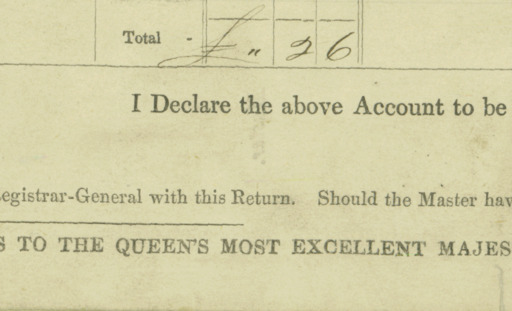 Total - £ " 2 6
I Declare the above Account to be
egistrar-General with this Return. Should the Master hav
S TO THE QUEEN'S MOST EXCELLENT MAJES